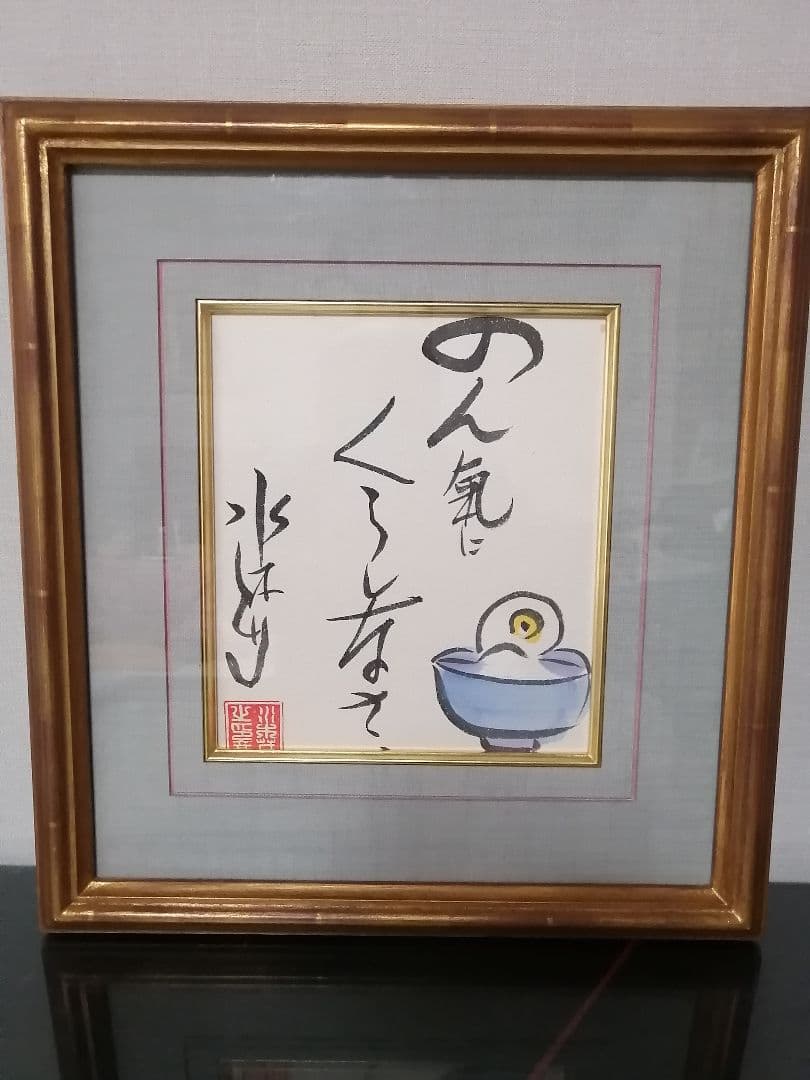 のん氣に
くらしなさい
水木